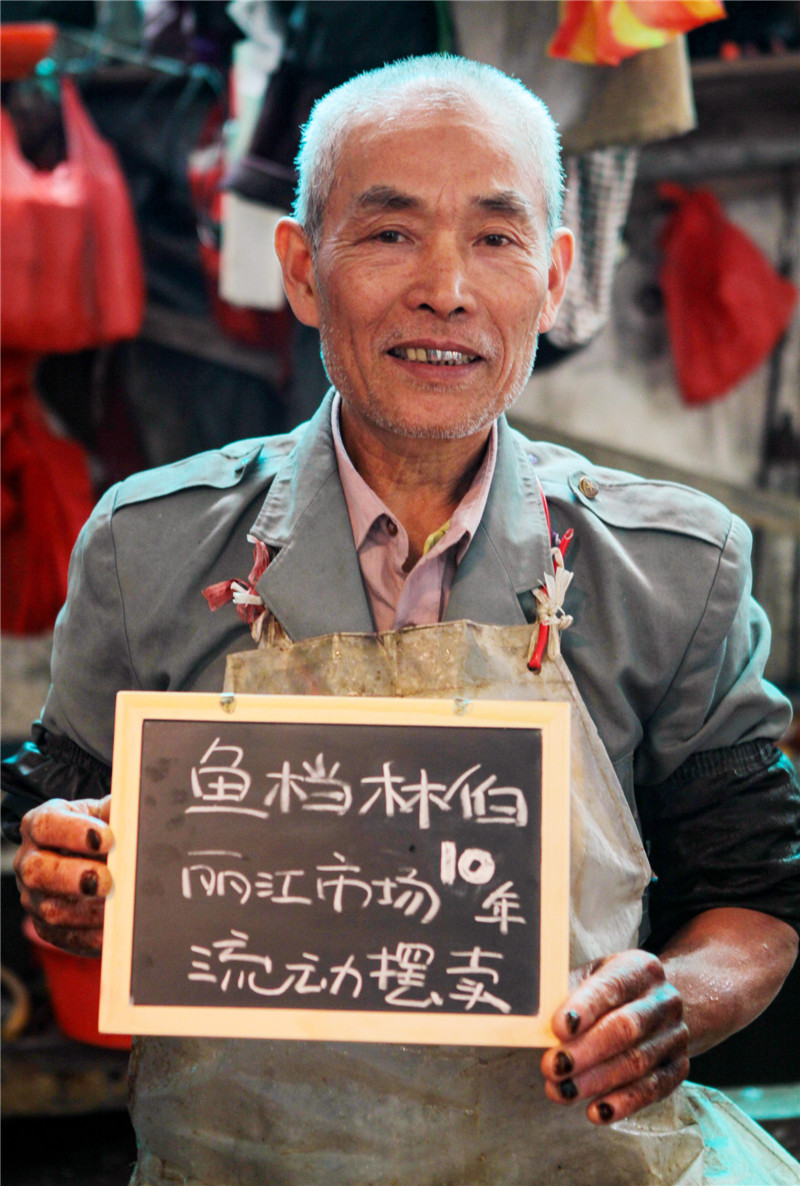 鱼档林伯
丽江市场10年
流动摆卖